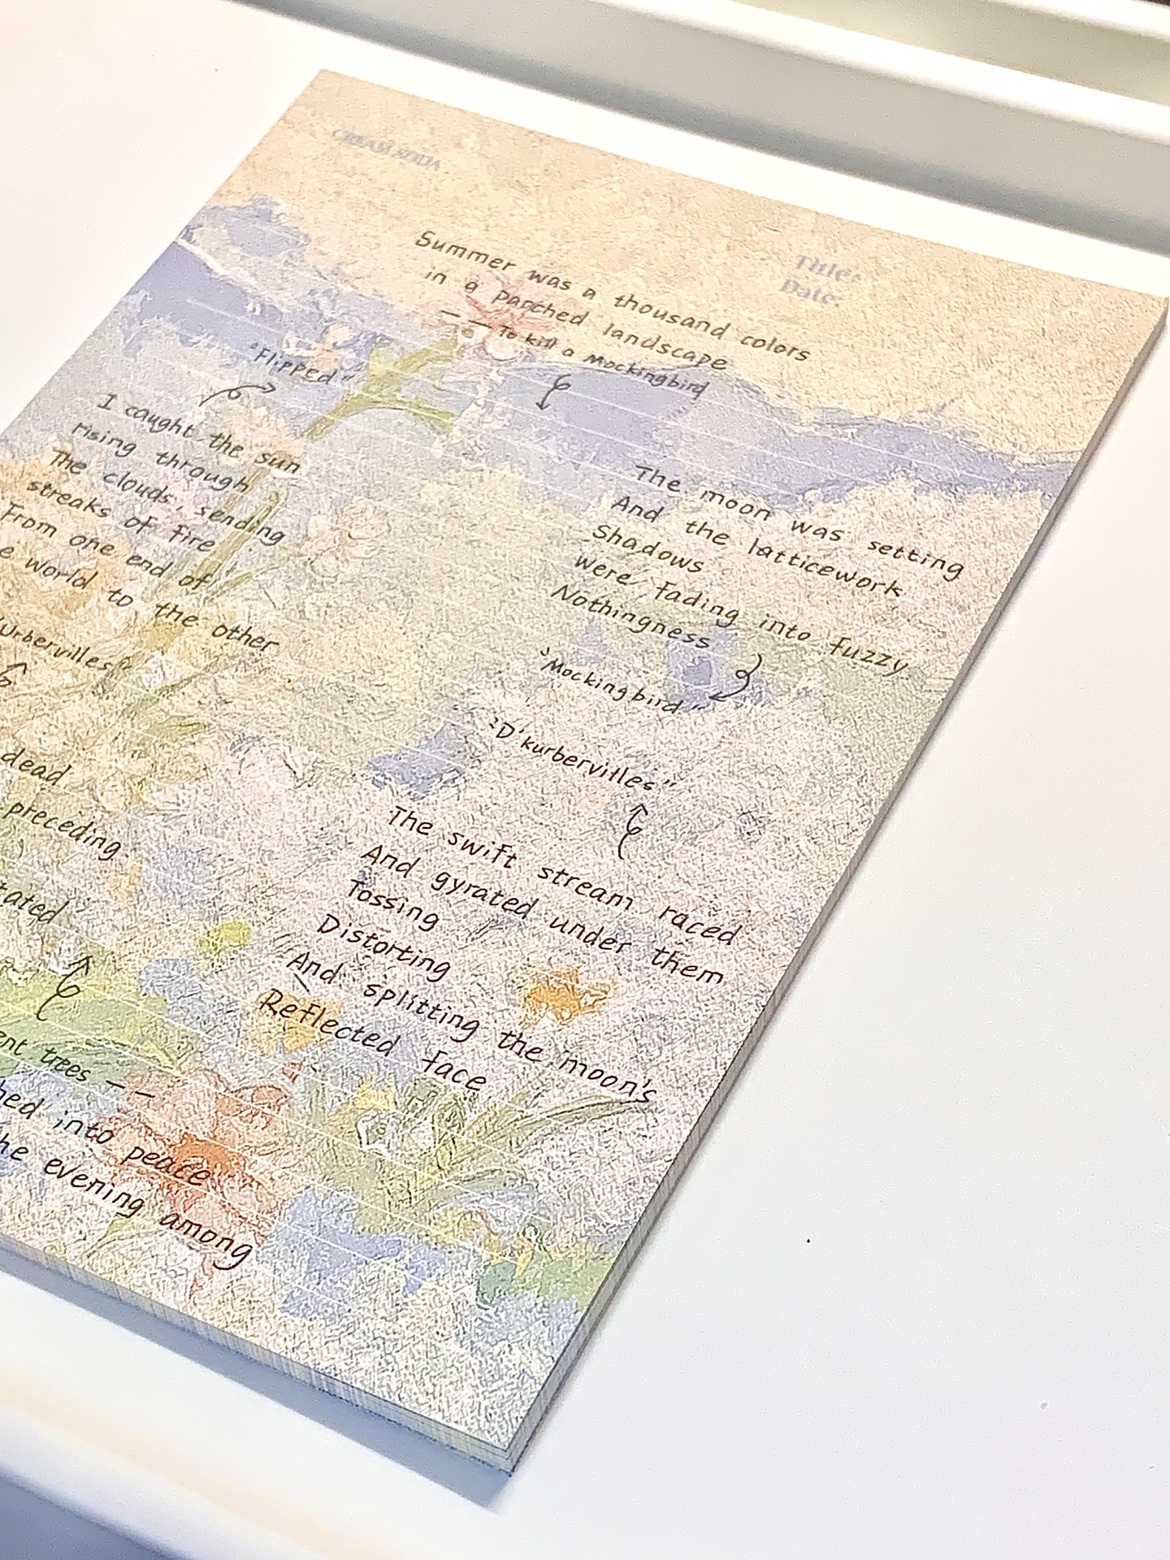 CREAM SODA
Title:
Date:
Summer was a thousand colors
in a parched landscape
—— To kill a Mockingbird
"Flipped"
I caught the sun
rising through
The clouds, sending
streaks of fire
From one end of
world to the other
The moon was setting
And the latticework
Shadows
were fading into fuzzy
Nothingness
"Mockingbird"
"D'kurbervilles"
The swift stream raced
And gyrated under them
Tossing
Distorting
And splitting the moon's
Reflected face
dead
preceding
trees ——
into peace
evening among